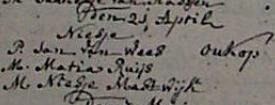 Den 21 April
Niesje
P. Jan Van Wees Oukop
M. Maria Ruijs
M Niesje Mastwijk